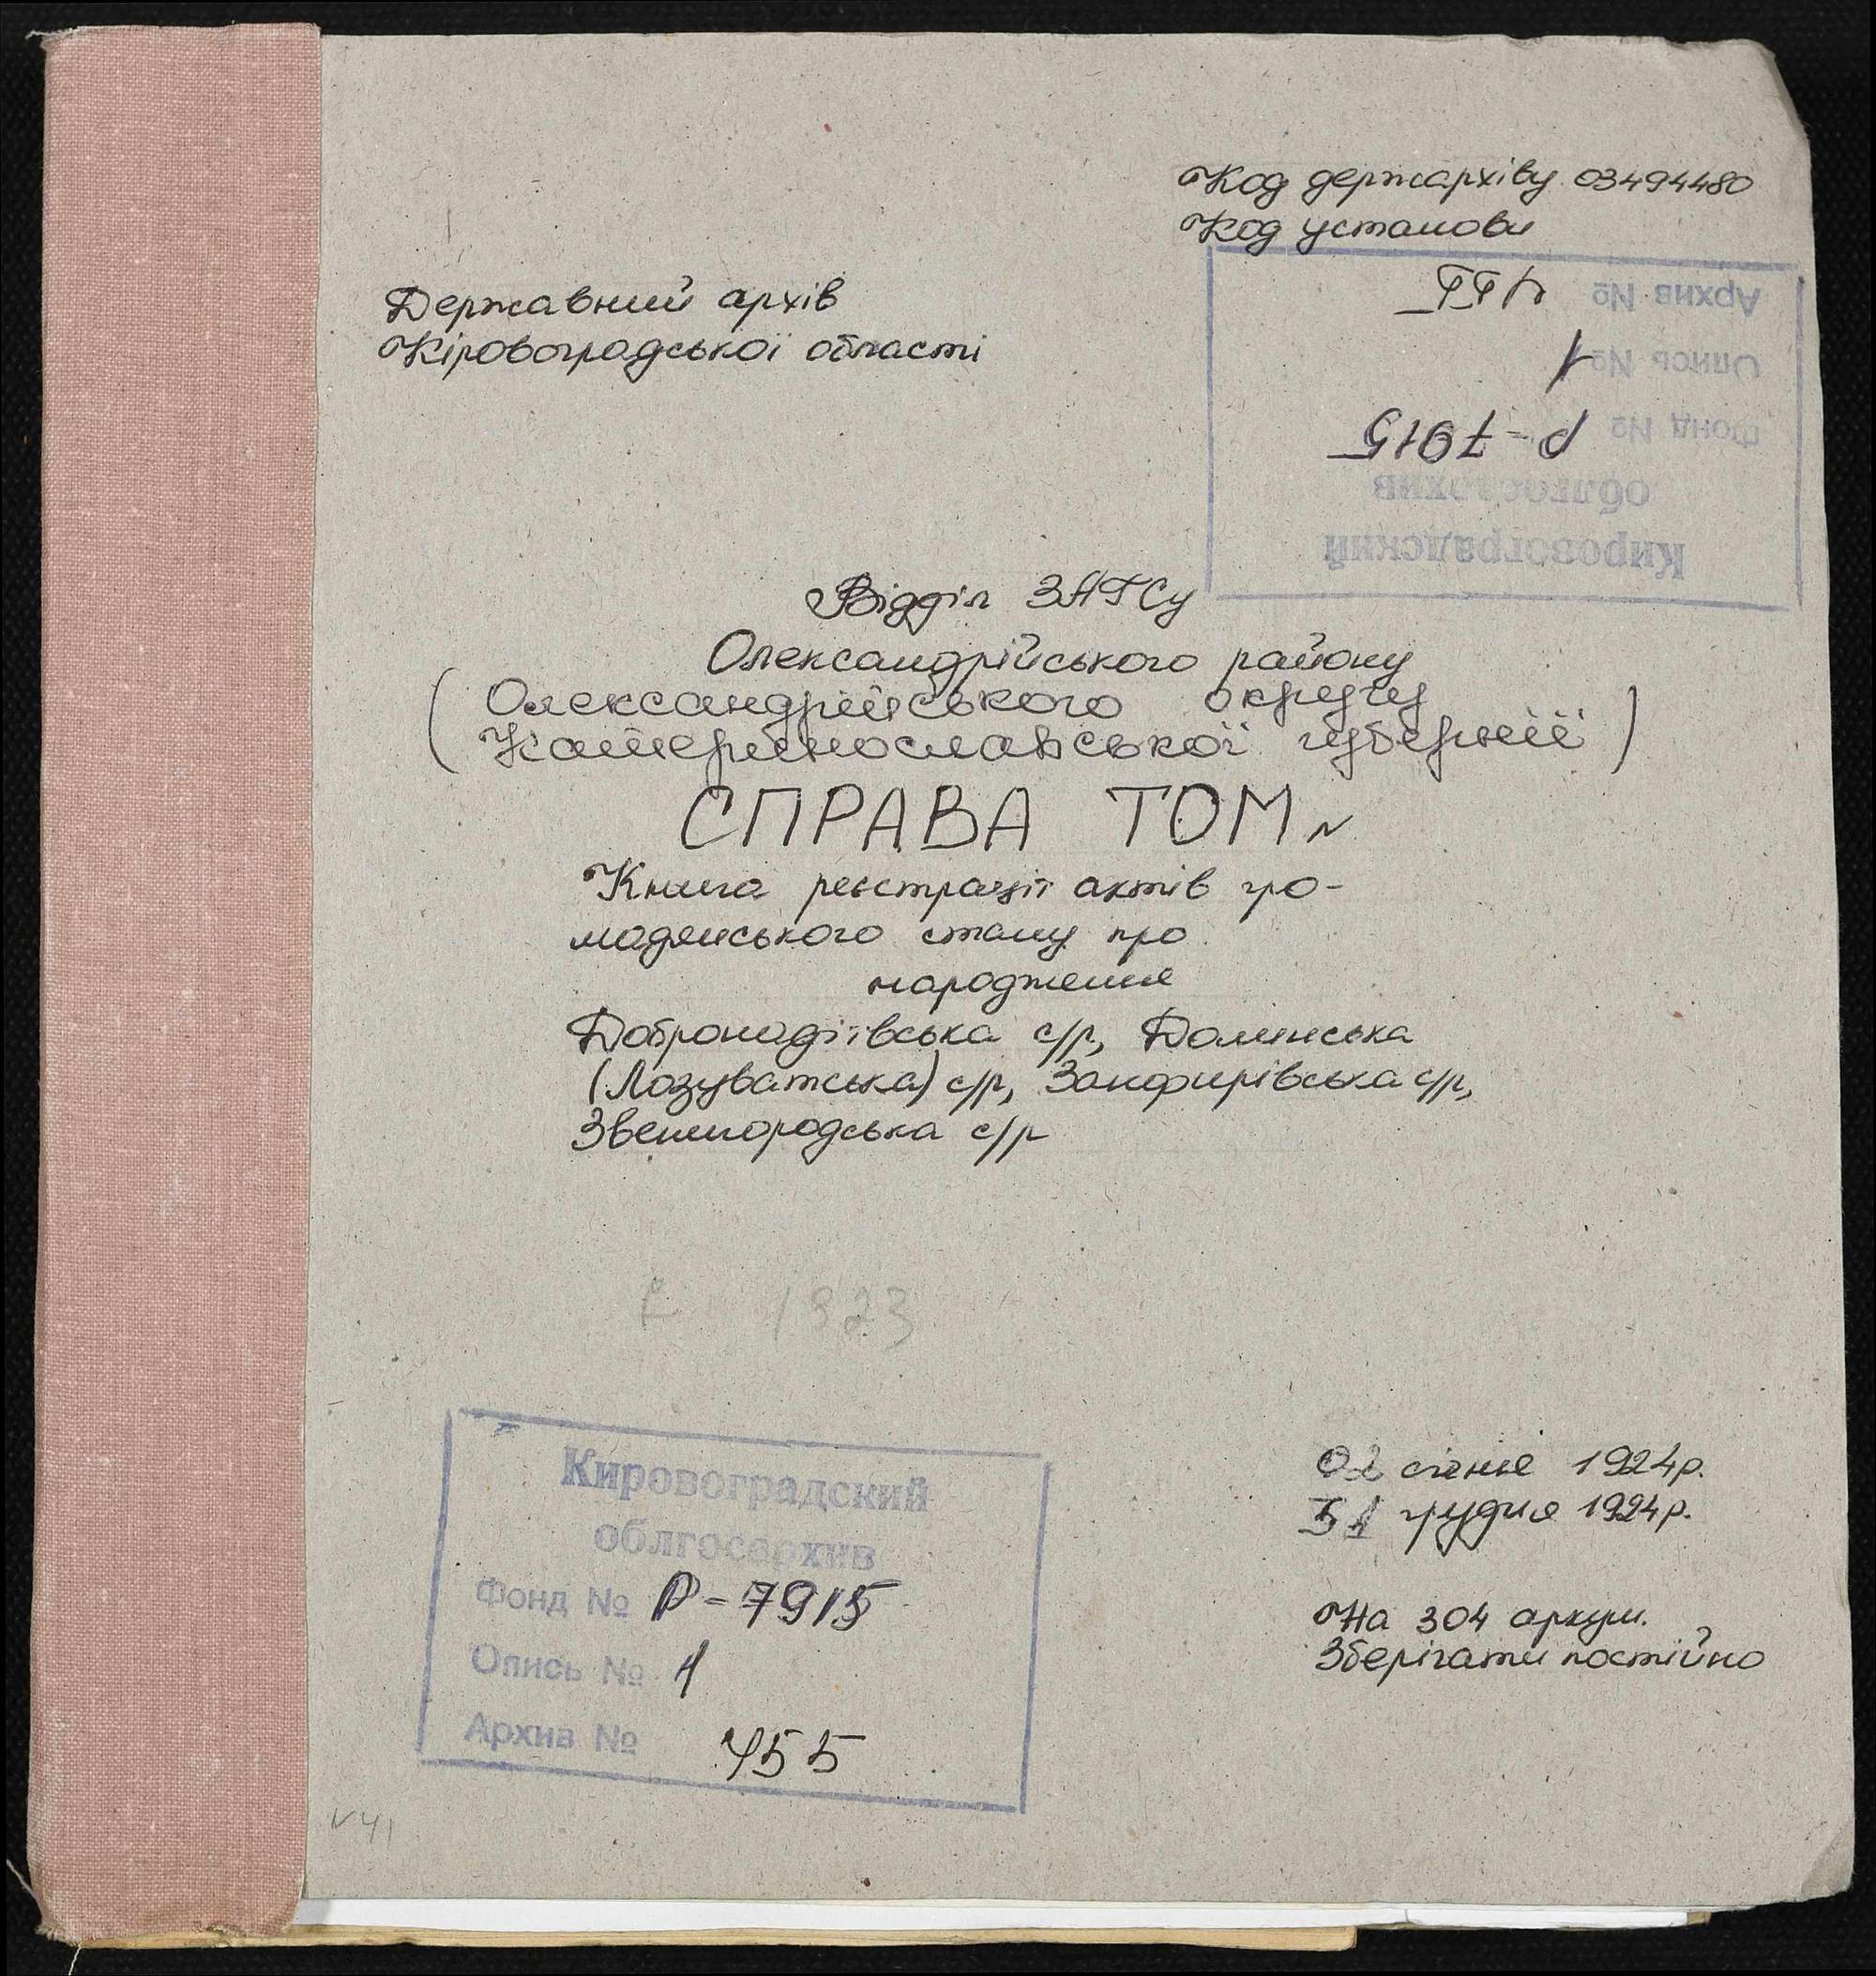 Код держархіву 03494480
Код установи
Державний архів
Кіровоградської області
Кировоградский
облгосархив
Фонд № Р-7915
Опись № 1
Архив № 455
Відділ ЗАГСу
Олександрійського району
(Олександрійського округу
Катеринославської губернії)
СПРАВА ТОМ №
Книга реєстрації актів гро-
мадянського стану про
народження
Добронадіївська с/р, Долинська
(Лозуватська) с/р, Занфирівська с/р,
Звенигородська с/р
1923
Кировоградский
облгосархив
Фонд № Р-7915
Опись № 1
Архив № 455
02 січня 1924р.
31 грудня 1924р.
На 304 аркуш.
Зберігати постійно